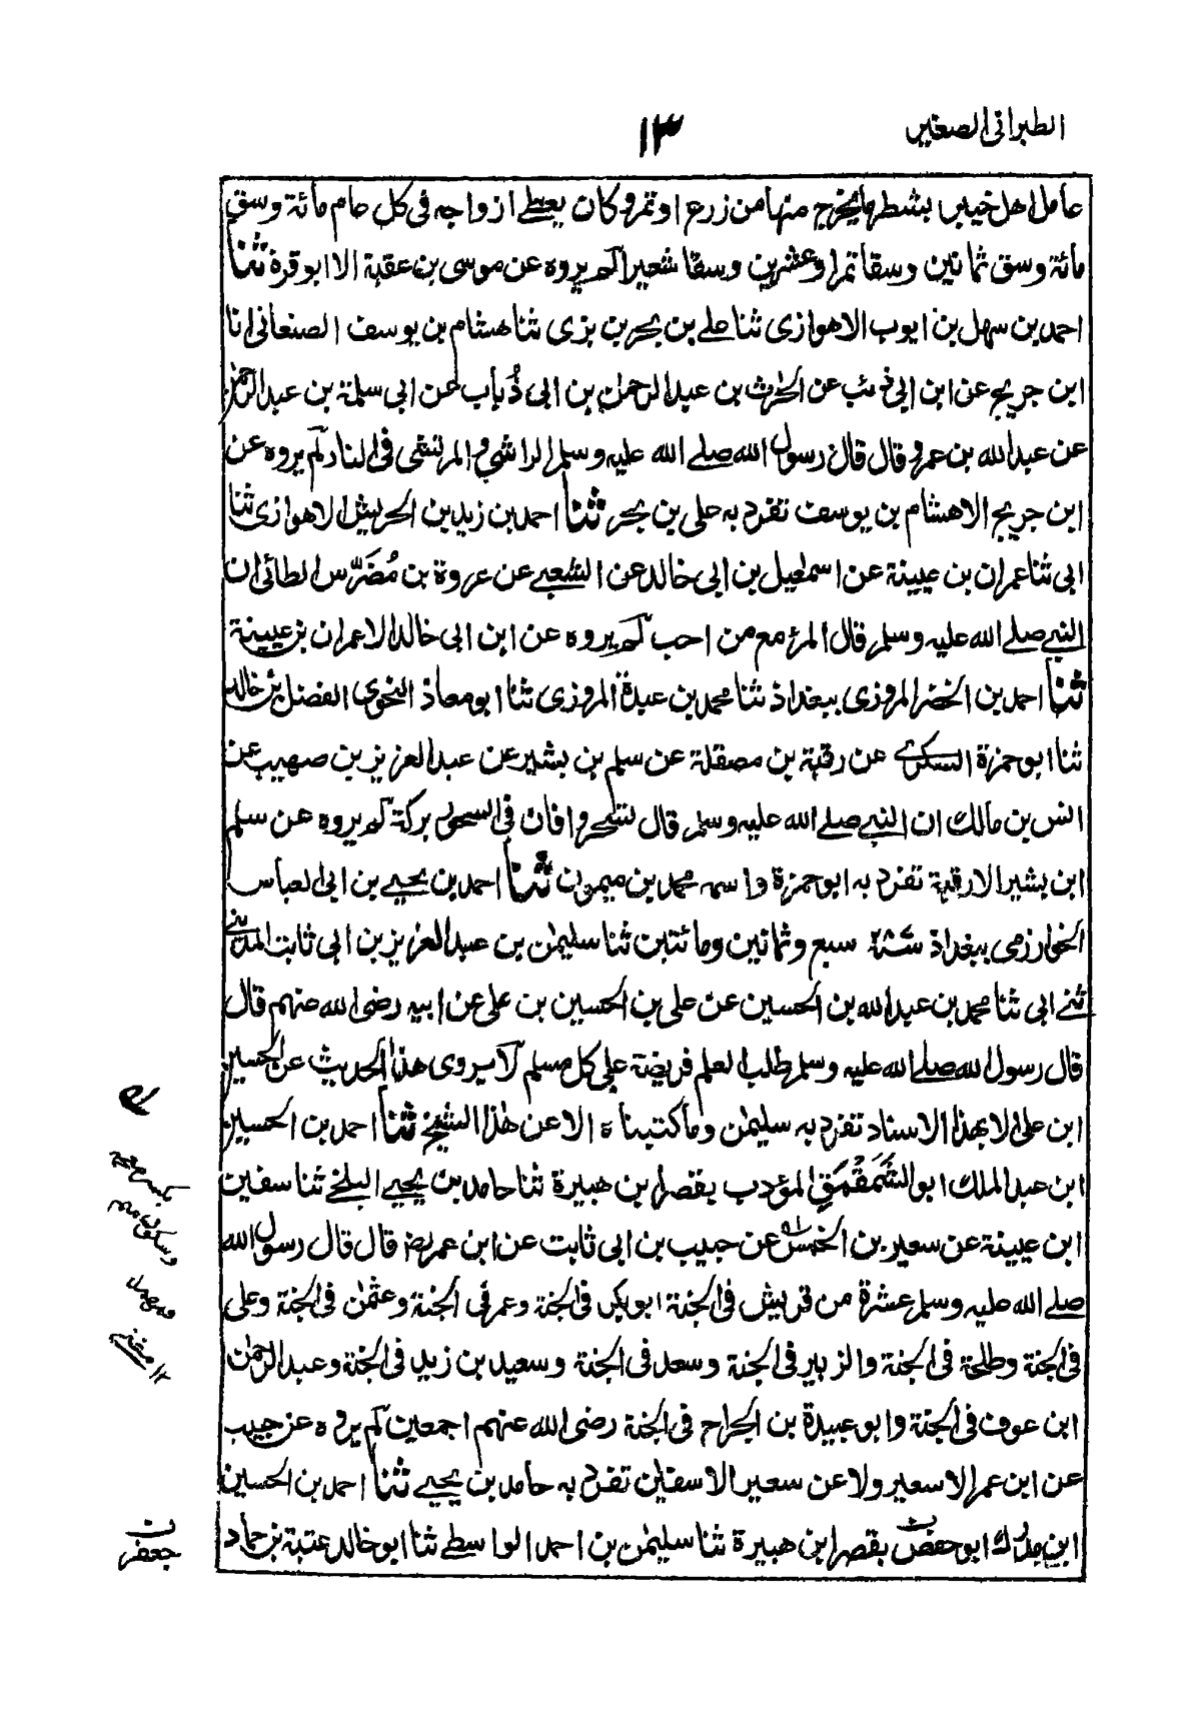 الطبرانى الصغير
١٣
عامل اهل خيبر بشطر ما يخرج منها من زرع او تمر وكان يعطے ازواجه فى كل عام مائة وسق
مائة وسق ثمانين وسقا تمرا وعشرين وسقا شعيرا لم يروه عن موسى بن عقبة الا ابو قرة ثنا
احمد بن سهل بن ايوب الاهوازى ثنا علے بن بحر بن برى ثنا هشام بن يوسف الصنعانى انا
ابن جريج عن ابن ابى ذئب عن الحٰرث بن عبد الرحمٰن بن ابى ذُباب عن ابى سلمة بن عبد الرحمٰن
عن عبد الله بن عمرو قال قال رسول الله صلے الله عليه وسلم الراشي والمرتشى فى النار لم يروه عن
ابن جريج الا هشام بن يوسف تفرد به على بن بحر ثنا احمد بن زيد بن الحريش الاهوازى ثنا
ابى ثنا عمران بن عيينة عن اسمٰعيل بن ابى خالد عن الشعبے عن عروة بن مُضَرّس الطائى ان
النبے صلے الله عليه وسلم قال المرء مع من احب لم يروه عن ابن ابى خالد الا عمران بن عيينة
ثنا احمد بن الخضر المروزى ببغداذ ثنا محمد بن عبدة المروزى ثنا ابو معاذ النحوى الفضل بن خالد
ثنا ابو حمزة السكرے عن رقبة بن مصقلة عن سلم بن بشير عن عبد العزيز بن صهيب عن
انس بن مالك ان النبے صلے الله عليه وسلم قال تسحروا فان فى السحور بركة لم يروه عن سلم
ابن بشير الا رقبة تفرد به ابو حمزة واسمه محمد بن ميمون ثنا احمد بن يحيے بن ابى العباس
الخوارزمى ببغداذ سنة ٢٨٧ سبع وثمانين ومائتين ثنا سليمٰن بن عبد العزيز بن ابى ثابت المدينے
ثنے ابى ثنا محمد بن عبد الله بن الحسين عن على بن الحسين بن على عن ابيه رضى الله عنهم قال
قال رسول الله صلے الله عليه وسلم طلب العلم فريضة على كل مسلم لا يروى هذا الحديث عن الحسين
ابن على الا بهذا الاسناد تفرد به سليمٰن وما كتبناه الا عن هٰذا الشيخ ثنا احمد بن الحسين
ابن عبد الملك ابو الشَمَقْمَقِ المؤدب بقصر ابن هبيرة ثنا حامد بن يحيے البلخے ثنا سفين
ابن عيينة عن سعير بن الخمس عن حبيب بن ابى ثابت عن ابن عمر رضـ قال قال رسول الله
صلے الله عليه وسلم عشرة من قريش فى الجنة ابو بكر فى الجنة وعمر فى الجنة وعثمٰن فى الجنة وعلى
فى الجنة وطلحة فى الجنة والزبير فى الجنة وسعد فى الجنة وسعيد بن زيد فى الجنة وعبد الرحمٰن
ابن عوف فى الجنة وابو عبيدة بن الجراح فى الجنة رضى الله عنهم اجمعين لم يروه عن حبيب
عن ابن عمر الا سعير ولا عن سعير الا سفيٰن تفرد به حامد بن يحيے ثنا احمد بن الحسين
ابن ابو حفص بقصر ابن هبيرة ثنا سليمٰن بن احمد الواسطے ثنا ابو خالد عتبة بن حماد
بكسر معجمة
وسكون ميم
ومهملة
١٢ مغنے
ن
جعفر